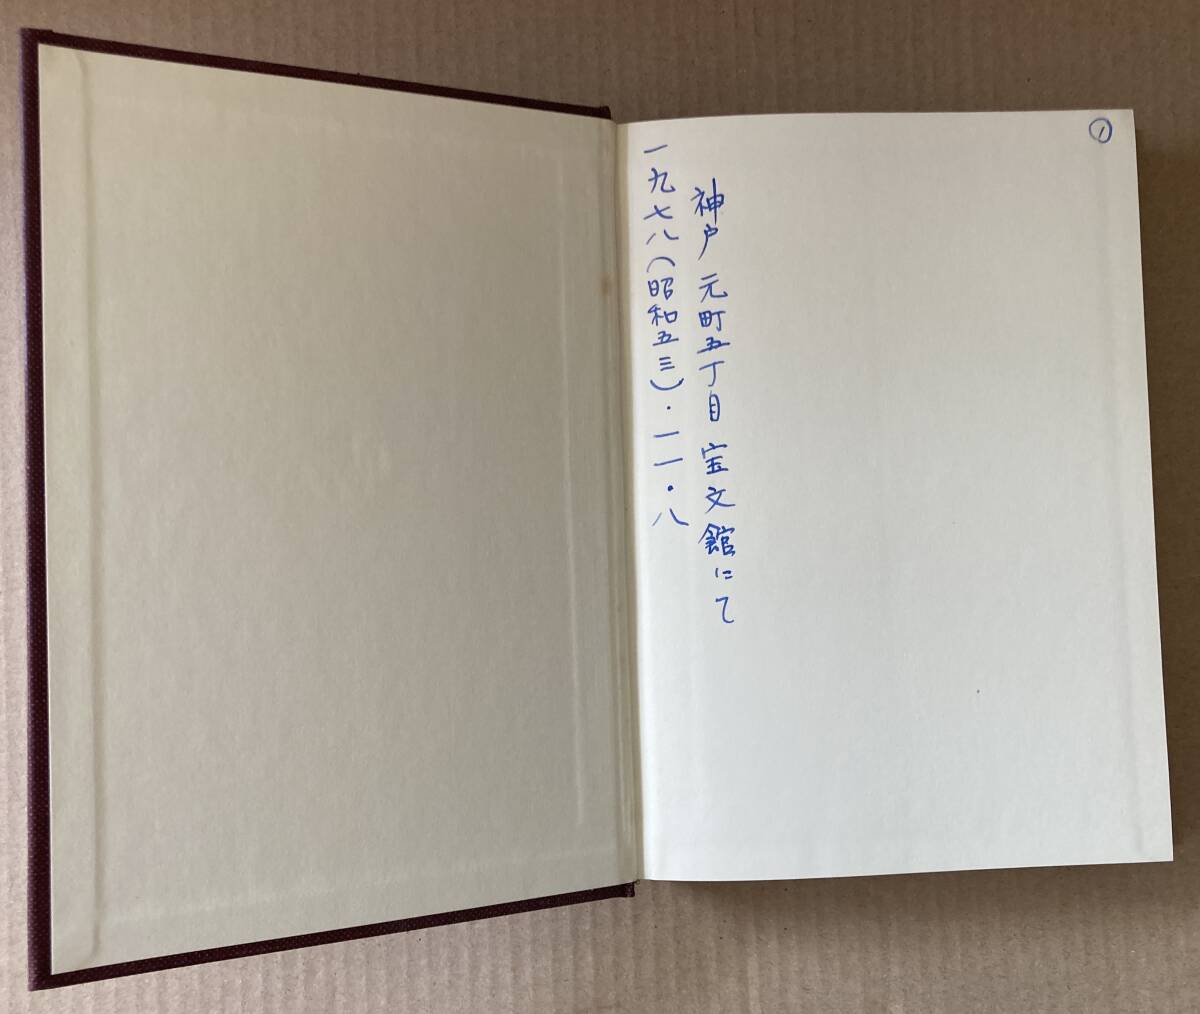 ①
神戸 元町五丁目 宝文館にて
一九七八(昭和五三)・一一・八